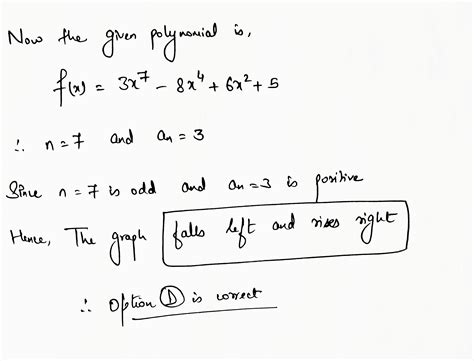 Now the given polynomial is,
f(x) = 3x⁷ - 8x⁴ + 6x² + 5
∴ n = 7 and aₙ = 3
Since n = 7 is odd and aₙ = 3 is positive
Hence, The graph falls left and rises right
∴ Option D is correct